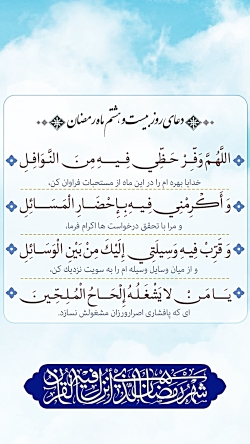 دعای روز بیست و هشتم ماه رمضان
اللَّهُمَّ وَفِّرْ حَظِّي فِيهِ مِنَ النَّوَافِلِ
خدایا بهره ام را در این ماه از مستحبات فراوان کن،
وَ أَكْرِمْنِي فِيهِ بِإِحْضَارِ الْمَسَائِلِ
و مرا با تحقق درخواست ها اکرام فرما،
وَ قَرِّبْ فِيهِ وَسِيلَتِي إِلَيْكَ مِنْ بَيْنِ الْوَسَائِلِ
و از میان وسایل وسیله ام را به سویت نزدیک کن،
يَا مَنْ لا يَشْغَلُهُ إِلْحَاحُ الْمُلِحِّينَ
ای که پافشاری اصرارورزان مشغولش نسازد.
شهر رمضان الذی انزل فیه القرآن